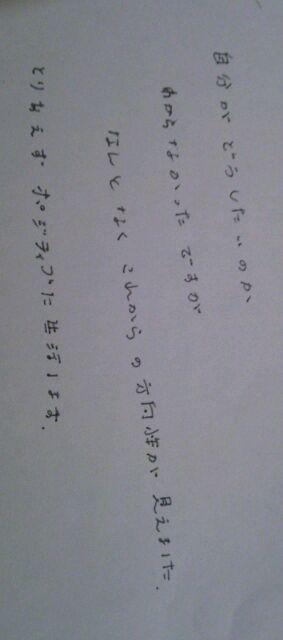 自分がどうしたいのか
わからなかったですが
なんとなくこれからの方向性が見えました.
とりあえずポジティブに生活します.